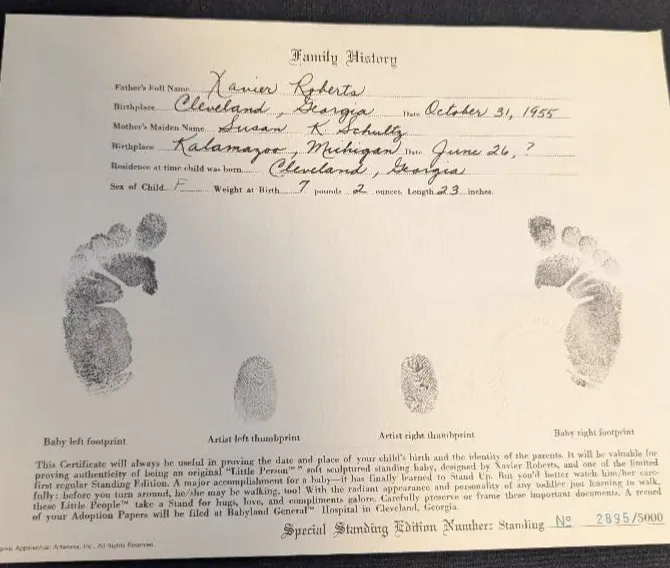 Family History
Father's Full Name Xavier Roberts
Birthplace Cleveland, Georgia Date October 31, 1955
Mother's Maiden Name Susan K Schultz
Birthplace Kalamazoo, Michigan Date June 26, ?
Residence at time child was born Cleveland, Georgia
Sex of Child F Weight at Birth 7 pounds 2 ounces. Length 23 inches.
Baby left footprint
Artist left thumbprint
Artist right thumbprint
Baby right footprint
This Certificate will always be useful in proving the date and place of your child's birth and the identity of the parents. It will be valuable for
proving authenticity of being an original "Little Person™" soft sculptured standing baby, designed by Xavier Roberts, and one of the limited
first regular Standing Edition. A major accomplishment for a baby—it has finally learned to Stand Up. But you'd better watch him/her care-
fully: before you turn around, he/she may be walking, too! With the radiant appearance and personality of any toddler just learning to walk,
these Little People™ take a Stand for hugs, love, and compliments galore. Carefully preserve or frame these important documents. A record
of your Adoption Papers will be filed at Babyland General™ Hospital in Cleveland, Georgia.
Special Standing Edition Number: Standing Nº 2895/5000
Appalachian Artworks, Inc., All Rights Reserved.